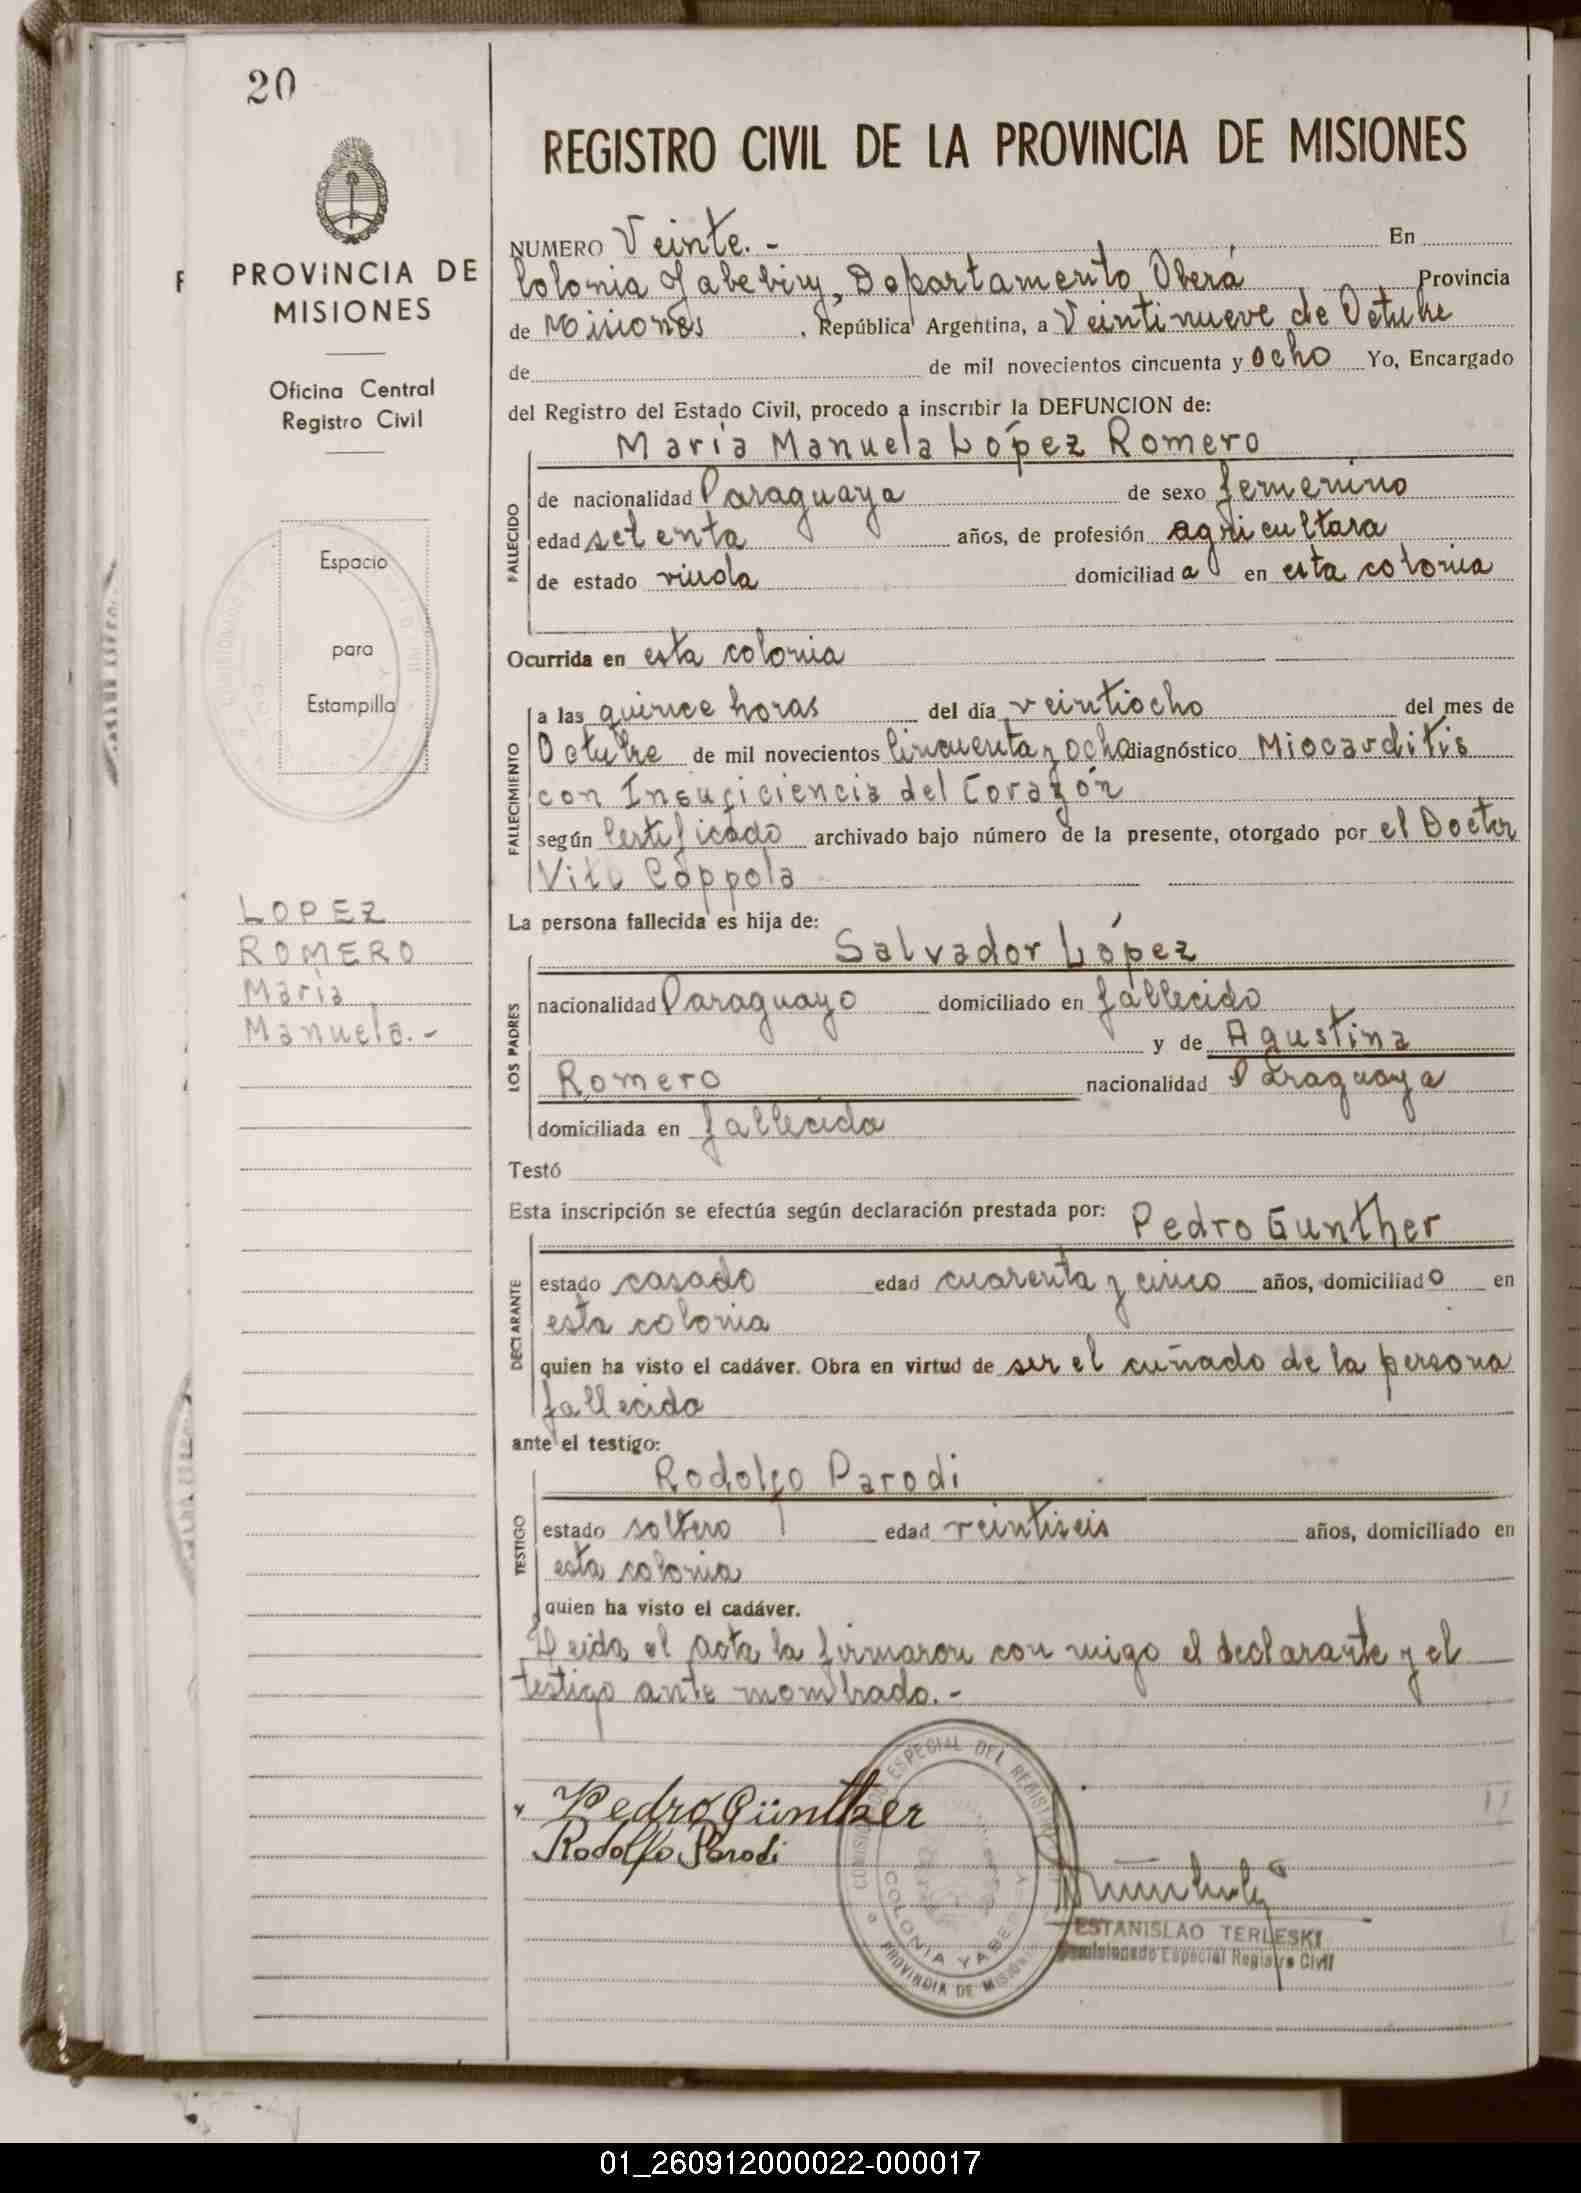 20
PROVINCIA DE
MISIONES
Oficina Central
Registro Civil
Espacio
para
Estampilla
LOPEZ
ROMERO
María
Manuela.-
REGISTRO CIVIL DE LA PROVINCIA DE MISIONES
NUMERO Veinte.- En
Colonia Yabebiry, Departamento Oberá Provincia
de Misiones, República Argentina, a Veintinueve de Octubre
de de mil novecientos cincuenta y ocho Yo, Encargado
del Registro del Estado Civil, procedo a inscribir la DEFUNCION de:
María Manuela López Romero
FALLECIDO
de nacionalidad Paraguaya de sexo femenino
edad setenta años, de profesión agricultara
de estado viuda domiciliada en esta colonia
Ocurrida en esta colonia
FALLECIMIENTO
a las quince horas del día veintiocho del mes de
Octubre de mil novecientos Cincuenta y ocho diagnóstico Miocarditis
con Insuficiencia del Corazón
según Certificado archivado bajo número de la presente, otorgado por el Doctor
Vito Cóppola
La persona fallecida es hija de:
Salvador López
LOS PADRES
nacionalidad Paraguayo domiciliado en fallecido
y de Agustina
Romero nacionalidad Paraguaya
domiciliada en fallecida
Testó
Esta inscripción se efectúa según declaración prestada por: Pedro Gunther
DECLARANTE
estado casado edad cuarenta y cinco años, domiciliado en
esta colonia
quien ha visto el cadáver. Obra en virtud de ser el cuñado de la persona
fallecida
ante el testigo:
Rodolfo Parodi
TESTIGO
estado soltero edad veintiseis años, domiciliado en
esta colonia
quien ha visto el cadáver.
Leida el acta la firmaron con migo el declarante y el
testigo ante mombrado.-
Pedro Günther
Rodolfo Parodi
ESPECIAL DEL REGISTRO
COLONIA YABEBIRY
PROVINCIA DE MISIONES
ESTANISLAO TERLESKI
Comisionado Especial Registro Civil
01_260912000022-000017